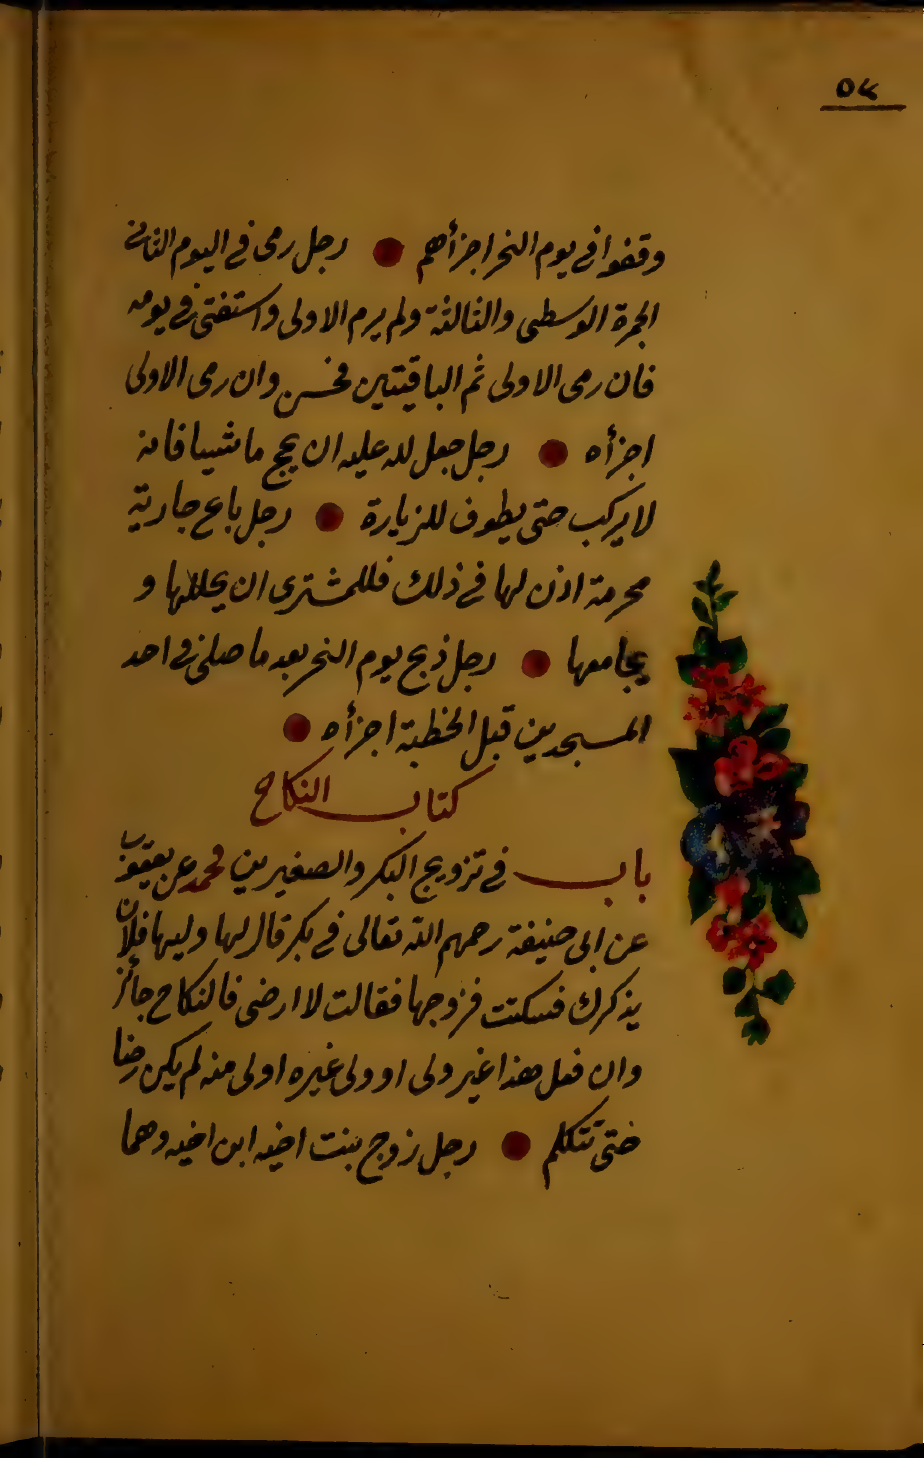 ٥٤
وقفوا في يوم النحر اجزأهم رجل رمى في اليوم الثانى
الجمرة الوسطى والثالثة ولم يرم الاولى واستفتى في يومه
فان رمى الاولى ثم الباقيتين فحسن وان رمى الاولى
اجزأه رجل جعل لله عليه ان يحج ماشيا فانه
لا يركب حتى يطوف للزيارة رجل باع جارية
محرمة اذن لها في ذلك فللمشترى ان يحللها و
يجامعها رجل ذبح يوم النحر بعد ما صلى في احد
المسجدين قبل الخطبة اجزأه
كتاب النكاح
باب في تزويج البكر والصغيرين محمد عن يعقوب
عن ابى حنيفة رحمهم الله تعالى في بكر قال لها وليها فلان
يذكرك فسكتت فزوجها فقالت لا ارضى فالنكاح جائز
وان فعل هذا غير ولى او ولى غيره اولى منه لم يكن رضا
حتى تتكلم رجل زوج بنت اخيه ابن اخيه وهما